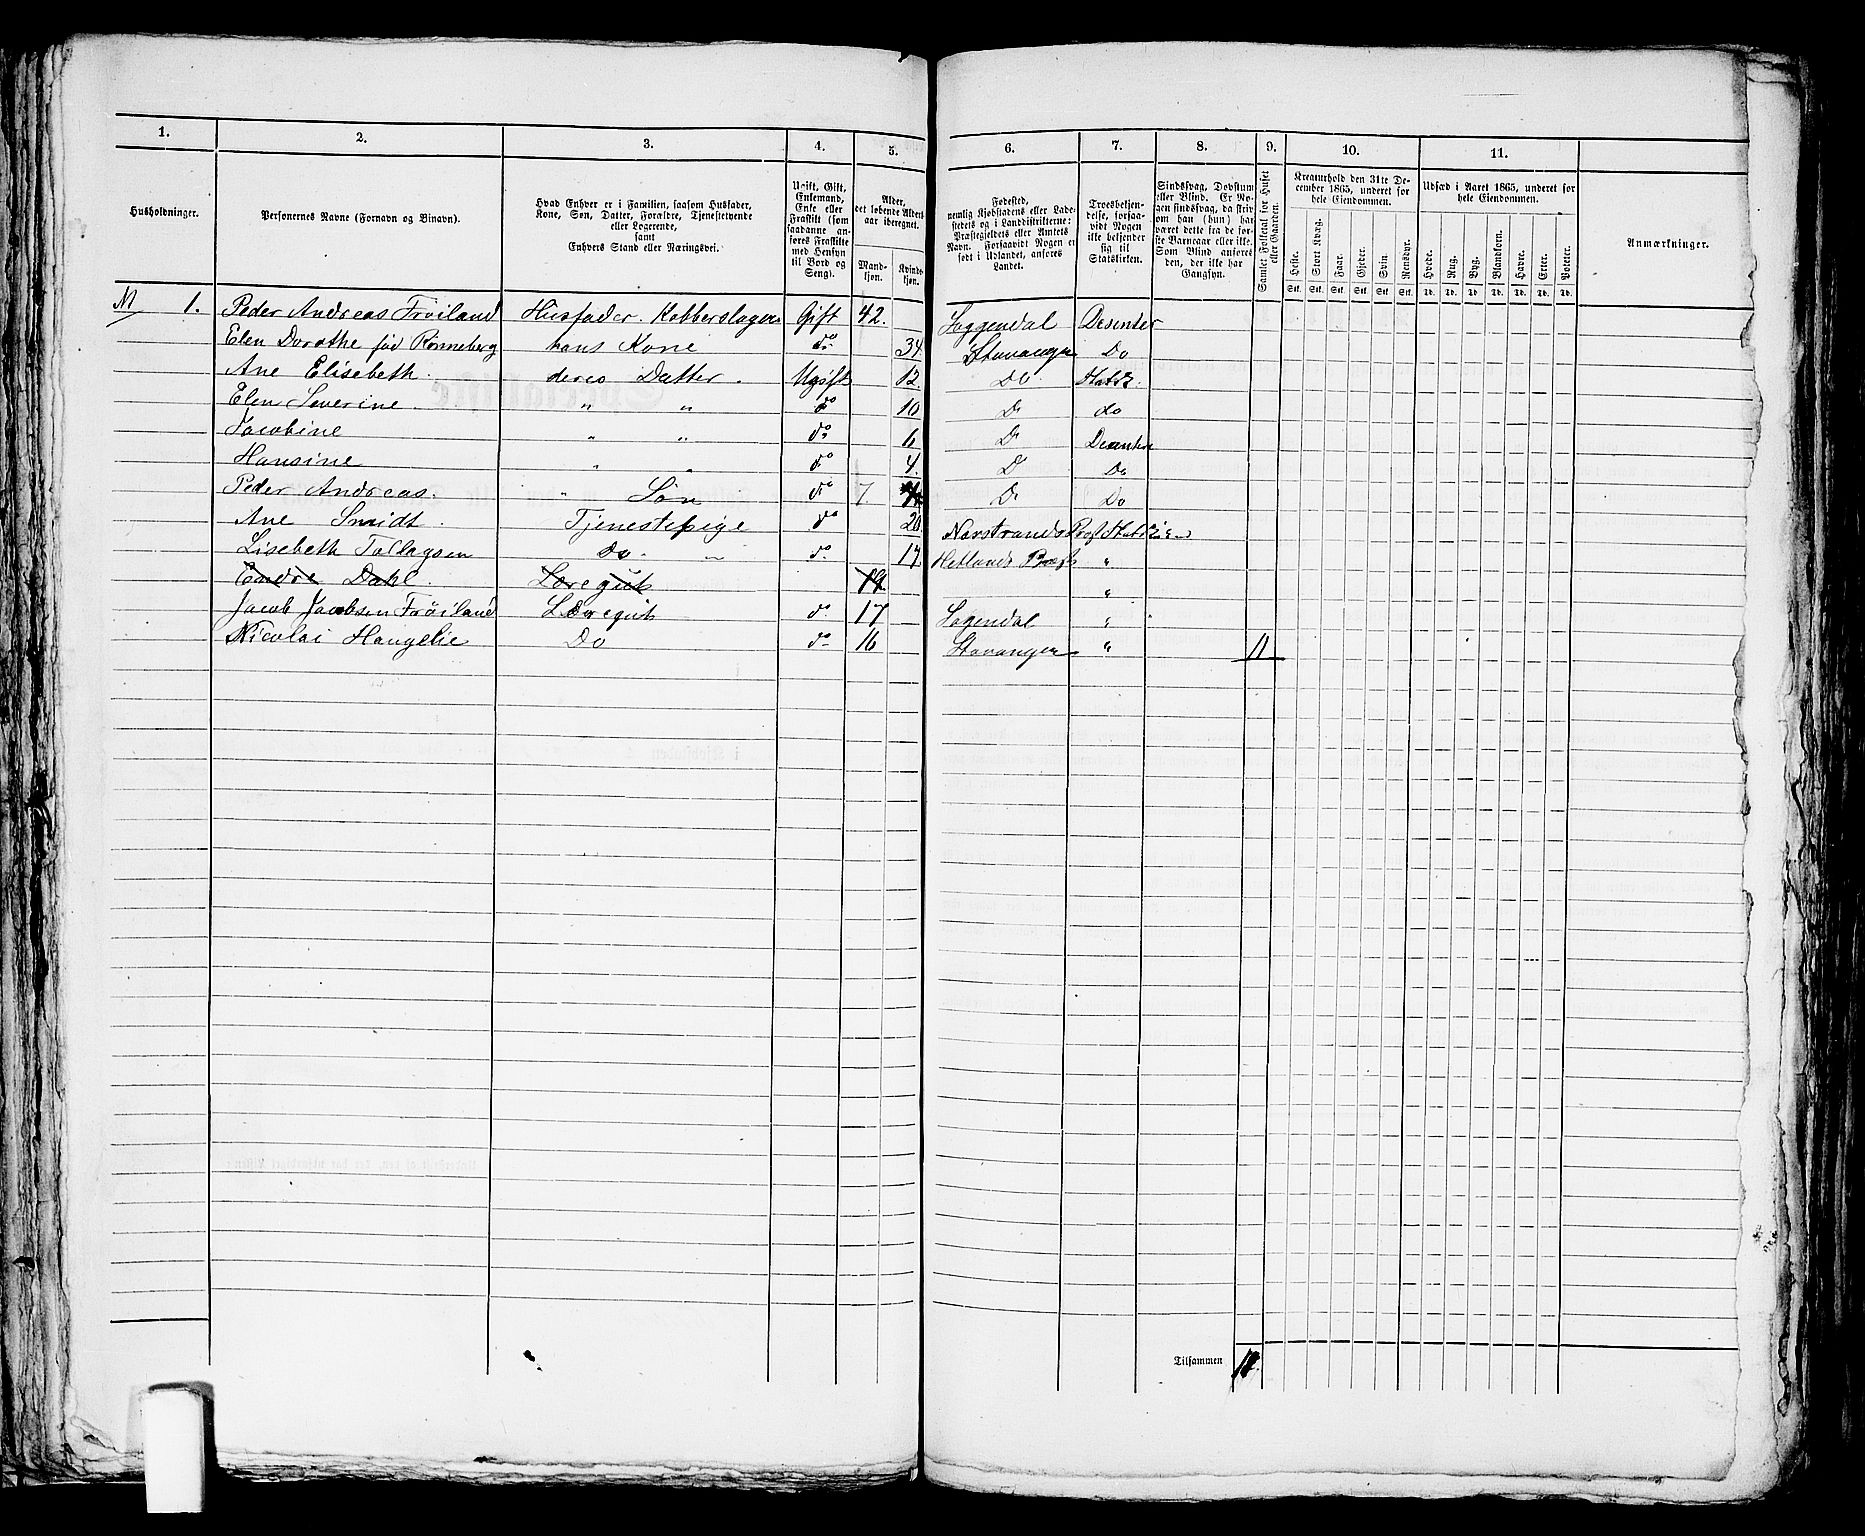 1. 2. 3. 4. 5. 6. 7. 8. 9. 10. 11.
Husholdninger.
Personernes Navne (Fornavn og Binavn).
Hvad Enhver er i Familien, saasom Husfader,
Kone, Søn, Datter, Forældre, Tjenestetyende
eller Logerende,
samt
Enhvers Stand eller Næringsvei.
Ugift, Gift,
Enkemand,
Enke eller
Fraskilt (som
saadanne an-
føres Fraskilte
med Hensyn
til Bord og
Seng).
Alder,
det løbende Alders-
aar iberegnet.
Mand-
kjøn.
Kvind-
kjøn.
Fødested,
nemlig Kjøbstadens eller Lade-
stedets og i Landdistrikterne:
Præstegjeldets eller Amtets
Navn. Forsaavidt Nogen er
født i Udlandet, anføres
Landet.
Troesbekjen-
delse, forsaa-
vidt Nogen
ikke bekjender
sig til
Statskirken.
Sindssvag, Døvstum
eller Blind. Er No-
gen sindssvag, da skriv
om han (hun) har
været dette fra de før-
ste Barneaar eller ikke.
Som Blind anføres
den, der ikke har
Gangsyn.
Samlet Folketal for Huset
eller Gaarden.
Kreaturhold den 31te De-
cember 1865, underet for
hele Eiendommen.
Heste. Stort Kvæg. Faar. Gjeder. Svin. Rensdyr.
Stk. Stk. Stk. Stk. Stk. Stk.
Udsæd i Aaret 1865, underet for
hele Eiendommen.
Hvede. Rug. Byg. Blandkorn. Havre. Erter. Poteter.
Td. Td. Td. Td. Td. Td. Td.
Anmærkninger.
M 1. Peder Andreas Trøiland Husfader. Kobberslager Gift 42. Soggendal Desenter
Elen Dorothe fød Rønneberg hans Kone do 34 Stavanger Do
Ane Elisebeth. deres Datter. Ugift 12. Do. Statsk.
Elen Severine. " " do 10 Do do
Jacobine " " do 6 Do Desenter
Hansine " " do 4. D Do
Peder Andreas. " Søn do 7. Do Do
Ane Smidt. Tjenestepige do 20 Nærstrands Præst Statskir
Lisebeth Tollagsen Do. " do. 17. Hetlands Præst "
Endre Dahl. Læregut 19 "
Jacob Jacobsen Frøiland Læregut do. 17 Sogendal "
Nicolai Haugelie Do do 16 Stavanger " 11
Tilsammen 11.